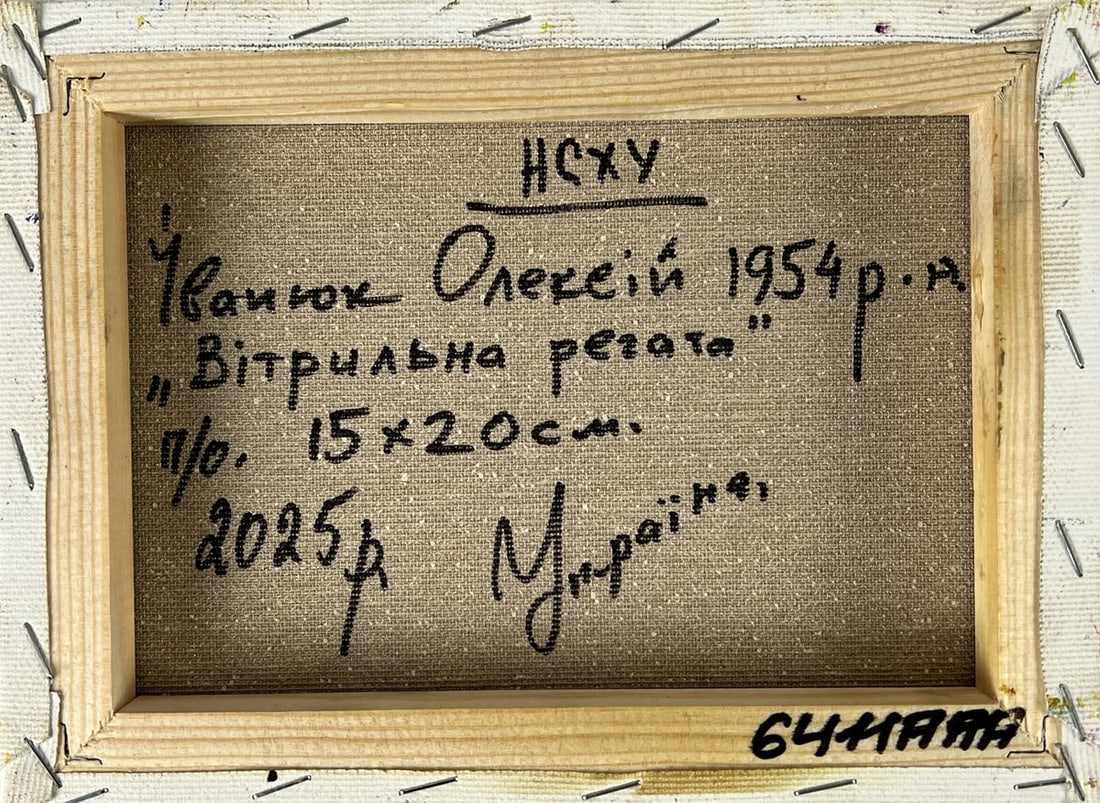 НСХУ
Іванюк Олексій 1954 р.н
„Вітрильна регата”
п/о. 15х20см.
2025р Україна,